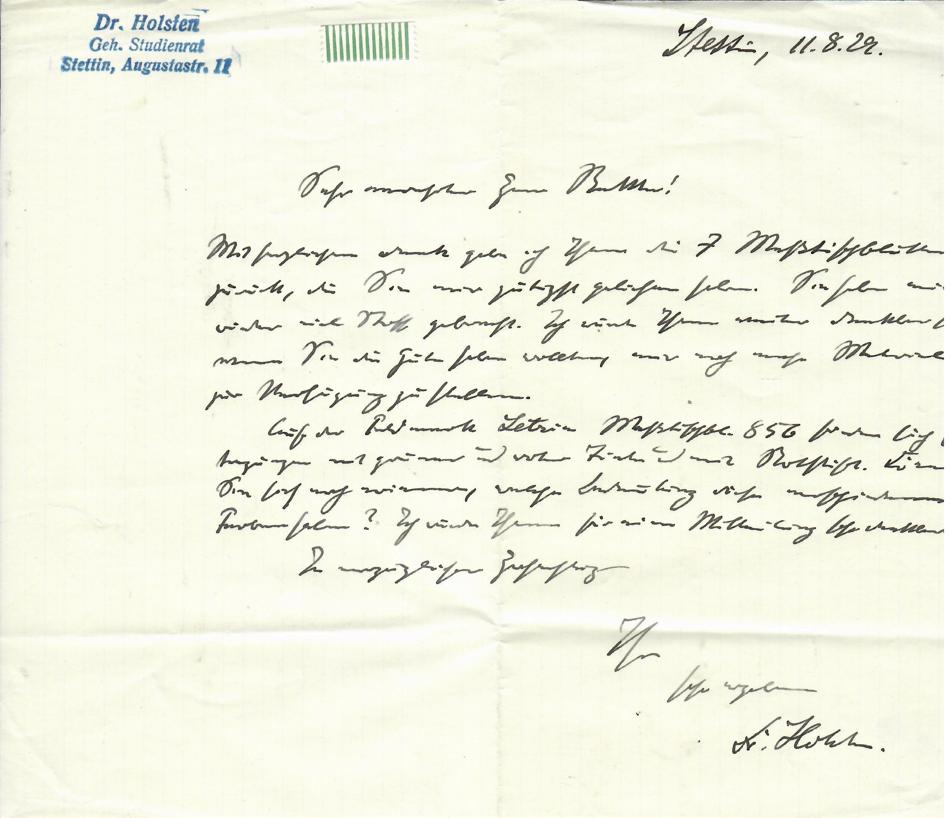 Dr. Holsten
Geh. Studienrat
Stettin, Augustastr. 11
Stettin, 11.8.29.
Sehr verehrter Herr
Mit herzlichem Dank gebe ich Ihnen die 7 Meßtischblätter
zurück, die Sie mir gütigst geliehen haben. Sie haben mir
wieder viel Stoff gebracht. Ich würde Ihnen weiter dankbar
wenn Sie die Güte haben wollten, mir noch mehr Material
zur Verfügung zu stellen.
Auf der Feldmark Letzin Meßtischbl. 856 finden sich
mit grüner und roter Tinte und mit Rotstift.
Sie sich noch erinnern, welche Bedeutung diese verschiedenen
Farben haben? Ich würde Ihnen für eine Mitteilung sehr dankbar
In vorzüglicher Hochachtung
Ihr
sehr ergebener
Dr. Holsten.